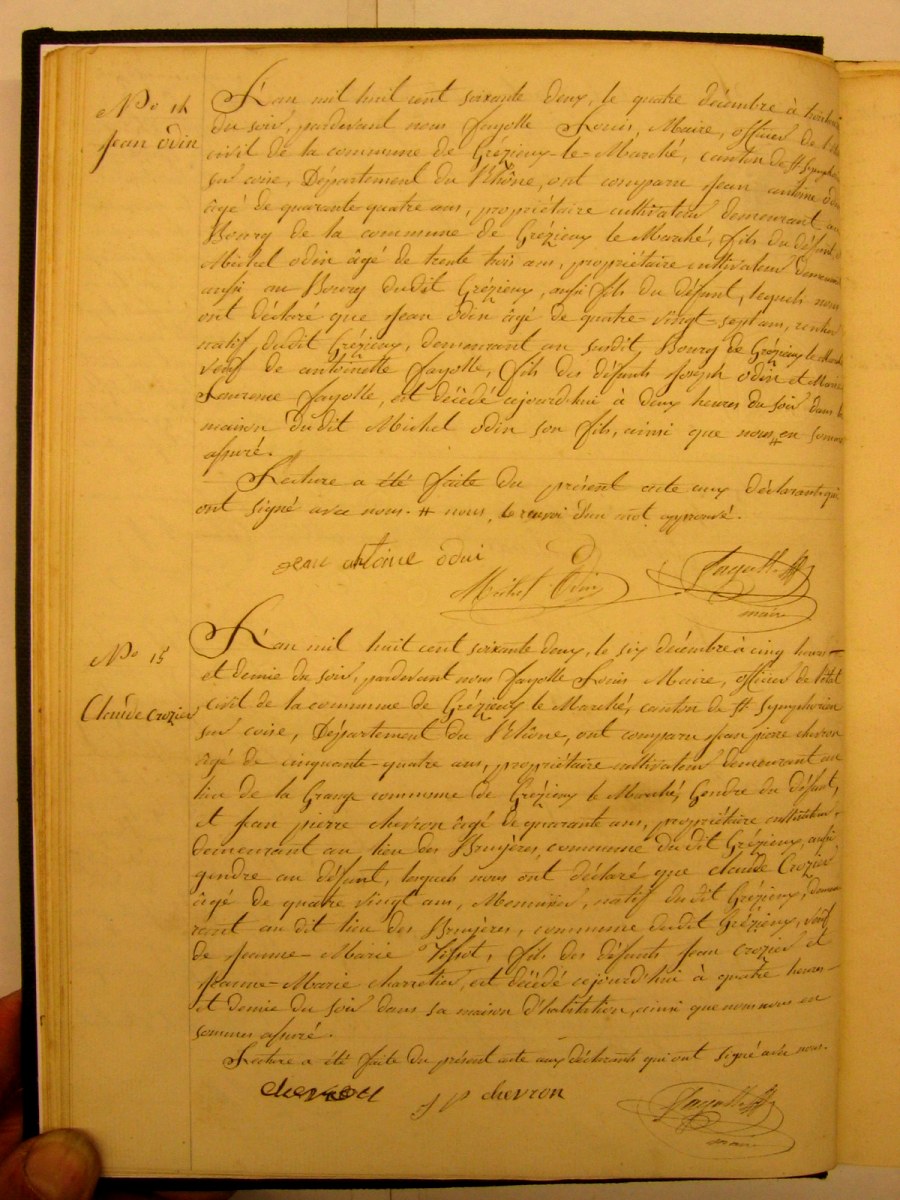 No 14
Jean Odin
L'an mil huit cent soixante deux, le quatre décembre à trois heures
du soir, pardevant nous Fayolle Louis, Maire, officier de l'état
civil de la commune de Grézieux-le-Marché, canton de St Symphorien
sur coise, Département du Rhône, ont comparu Jean antoine odin
âgé de quarante-quatre ans, propriétaire cultivateur demeurant au
Bourg de la commune de Grézieux le Marché, fils du défunt, et
Michel odin âgé de trente trois ans, propriétaire cultivateur demeurant
aussi au Bourg dudit Grézieux, aussi fils du défunt, lequels nous
ont déclaré que Jean Odin âgé de quatre-vingt-sept ans, rentier
natif dudit Grézieux, demeurant au susdit Bourg de Grézieux le Marché
veuf de antoinette Fayolle, fils des défunts Joseph Odin et Marie
Laurence Fayolle, est décédé cejourd'hui à deux heures du soir dans la
maison dudit Michel odin son fils, ainsi que nous # en sommes
assuré.
Lecture a été faite du présent acte aux déclarants qui
ont signé avec nous. # nous, le renvoi d'un mot approuvé.
jean antoine odin
Michel Odin
Fayolle
maire
No 15
Claude Crozier
L'an mil huit cent soixante deux, le six décembre à cinq heures
et demie du soir, pardevant nous Fayolle Louis Maire, officier de l'état
civil de la commune de Grézieux le Marché, canton de St Symphorien
sur coise, Département du Rhône, ont comparu Jean pierre chevron
âgé de cinquante-quatre ans, propriétaire cultivateur demeurant au
lieu de la Grange commune de Grézieux le Marché, Gendre du défunt,
et Jean pierre chevron âgé de quarante ans, propriétaire cultivateur,
demeurant au lieu des Bruyères, commune dudit Grézieux, aussi
gendre au défunt, lesquels nous ont déclaré que claude Crozier
âgé de quatre vingt ans, natif dudit Grézieux, demeu
rant au dit lieu des Bruyères, commune dudit Grézieux, veuf
de Jeanne-Marie Tissot, fils des défunts Jean crozier et
Jeanne-Marie charretier, est décédé cejourd'hui à quatre heures
et demie du soir dans sa maison d'habitation, ainsi que nous nous en
sommes assuré.
Lecture a été faite du présent acte aux déclarants qui ont signé avec nous.
chevron
J P chevron
Fayolle
maire